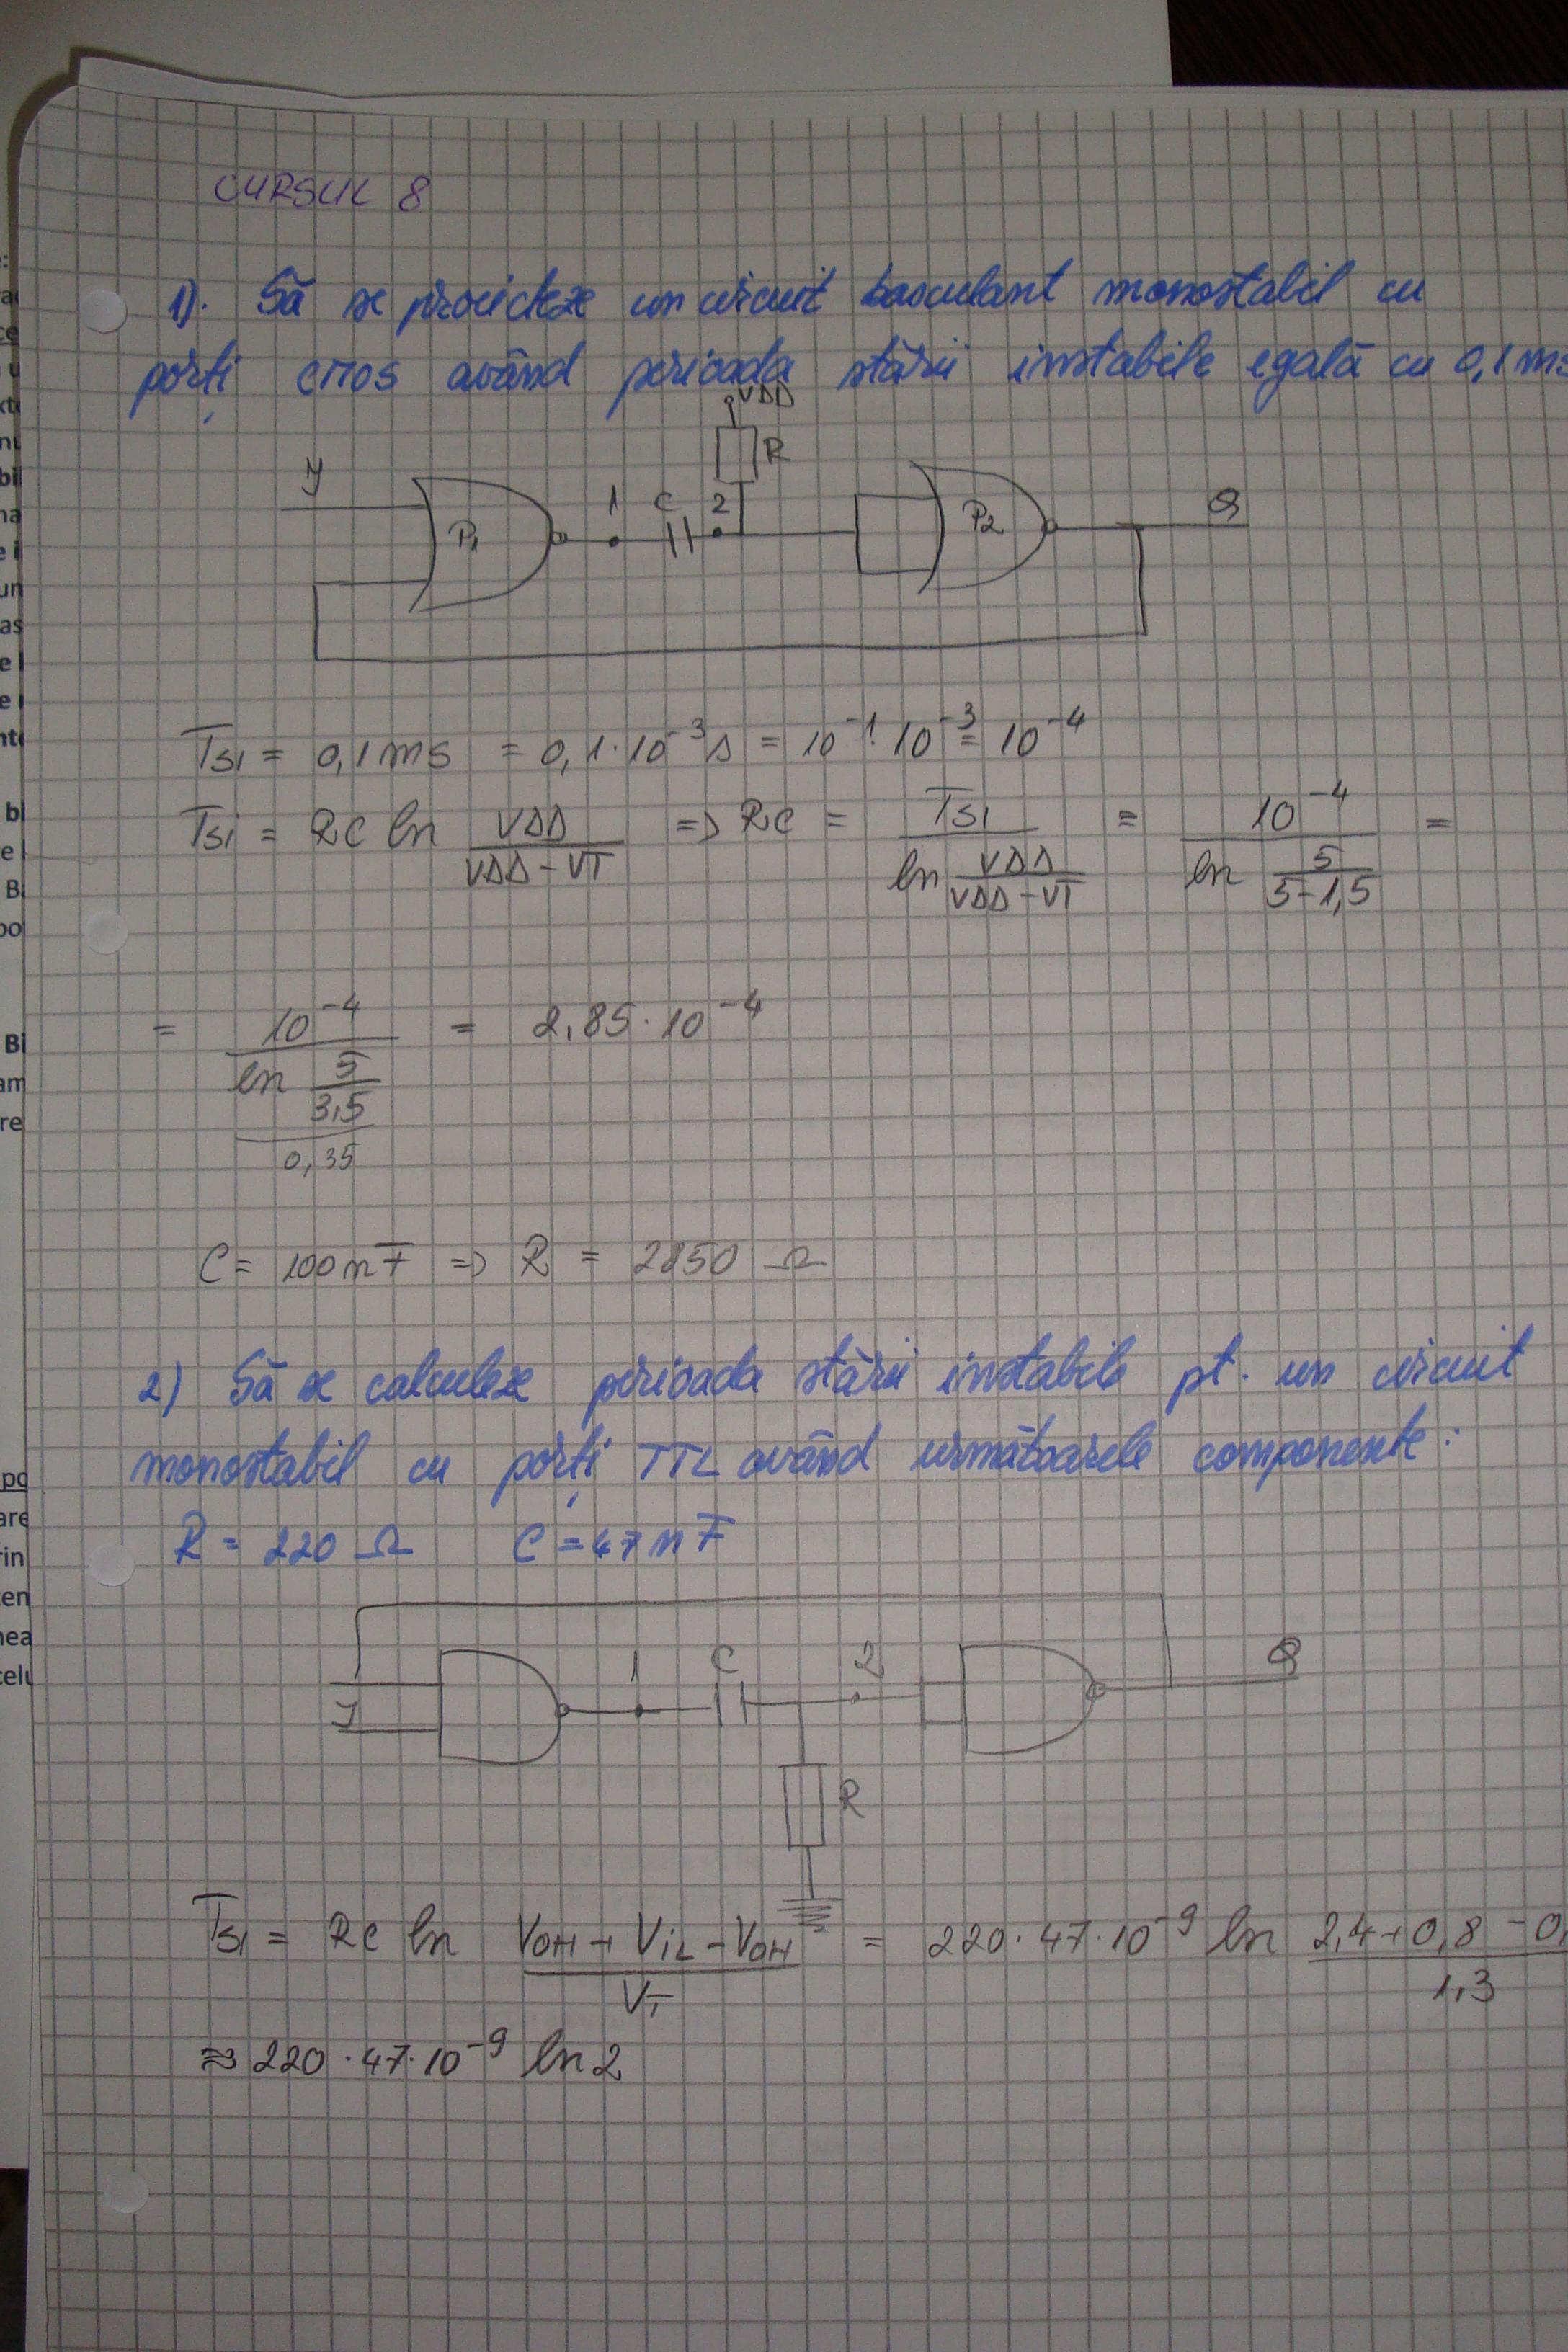 CURSUL 8
1). Să se proiecteze un circuit basculant monostabil cu
porți CMOS având perioada stării instabile egală cu 0,1 ms
VDD
R
y
P1
1
C
2
P2
Q
TSI = 0,1 ms = 0,1·10⁻³ s = 10⁻¹·10⁻³ = 10⁻⁴
TSI = RC ln VDD/(VDD-VT) => RC = TSI/(ln VDD/(VDD-VT)) = 10⁻⁴/(ln 5/(5-1,5)) =
= 10⁻⁴/(ln 5/3,5) = 2,85·10⁻⁴
0,35
C = 100 nF => R = 2850 Ω
2) Să se calculeze perioada stării instabile pt. un circuit
monostabil cu porți TTL având următoarele componente:
R = 220 Ω C = 47 nF
1
C
2
Q
y
R
TSI = RC ln (VOH + ViL - VOH)/VT = 220·47·10⁻⁹ ln (2,4+0,8-0,/1,3
≈ 220·47·10⁻⁹ ln 2